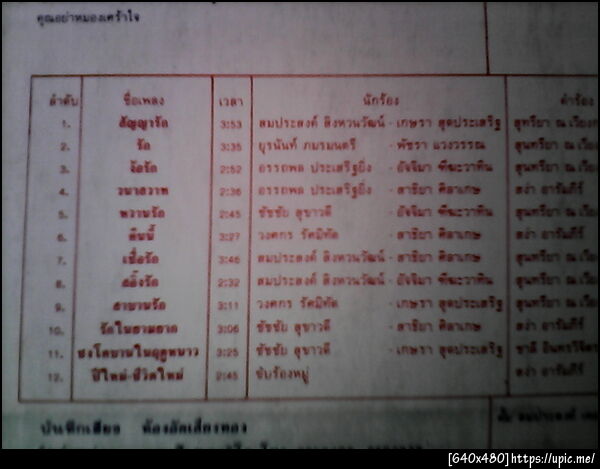 คุณอย่าหมองเศร้าใจ
ลำดับ ชื่อเพลง เวลา นักร้อง คำร้อง
1. สัญญารัก 3:53 สมประสงค์ สิงหวนวัฒน์ - เกษรา สุดประเสริฐ สุนทรียา ณ เวียง
2. รัก 3:35 ยุรนันท์ ภมรมนตรี - พัชรา แวงวรรณ สุนทรียา ณ เวีย
3. 2:52 อรรถพล ประเสริฐยิ่ง - อัจจิมา สุนทรียา ณ เวีย
4. วนาสวาท 2:36 อรรถพล ประเสริฐยิ่ง - สาธิยา ศิลาเกษ สง่า อารัมภีร์
5. หวานรัก 2:45 ชัชชัย สุขาวดี - อัจจิมา สุนทรียา ณ เวีย
6. คืนนี้ 3:27 วงศกร รัศมิทัต - สาธิยา ศิลาเกษ สง่า อารัมภีร์
7. เชื่อรัก 3:46 สมประสงค์ สิงหวนวัฒน์ - สาธิยา ศิลาเกษ สุนทรียา ณ เวีย
8. 2:32 สมประสงค์ สิงหวนวัฒน์ - อัจจิมา สุนทรียา ณ เวีย
9. สาบานรัก 3:11 วงศกร รัศมิทัต - เกษรา สุดประเสริฐ สุนทรียา ณ เวีย
10. รักในยามยาก 3:06 ชัชชัย สุขาวดี - สาธิยา ศิลาเกษ สง่า อารัมภีร์
11. 3:25 ชัชชัย สุขาวดี - เกษรา สุดประเสริฐ ชาลี อินทรวิจิตร
12. ปีใหม่-ชีวิตใหม่ 2:45 ขับร้องหมู่ สง่า อารัมภีร์
บันทึกเสียง ห้องอัดเสียงทอง
[640x480]https://upic.me/